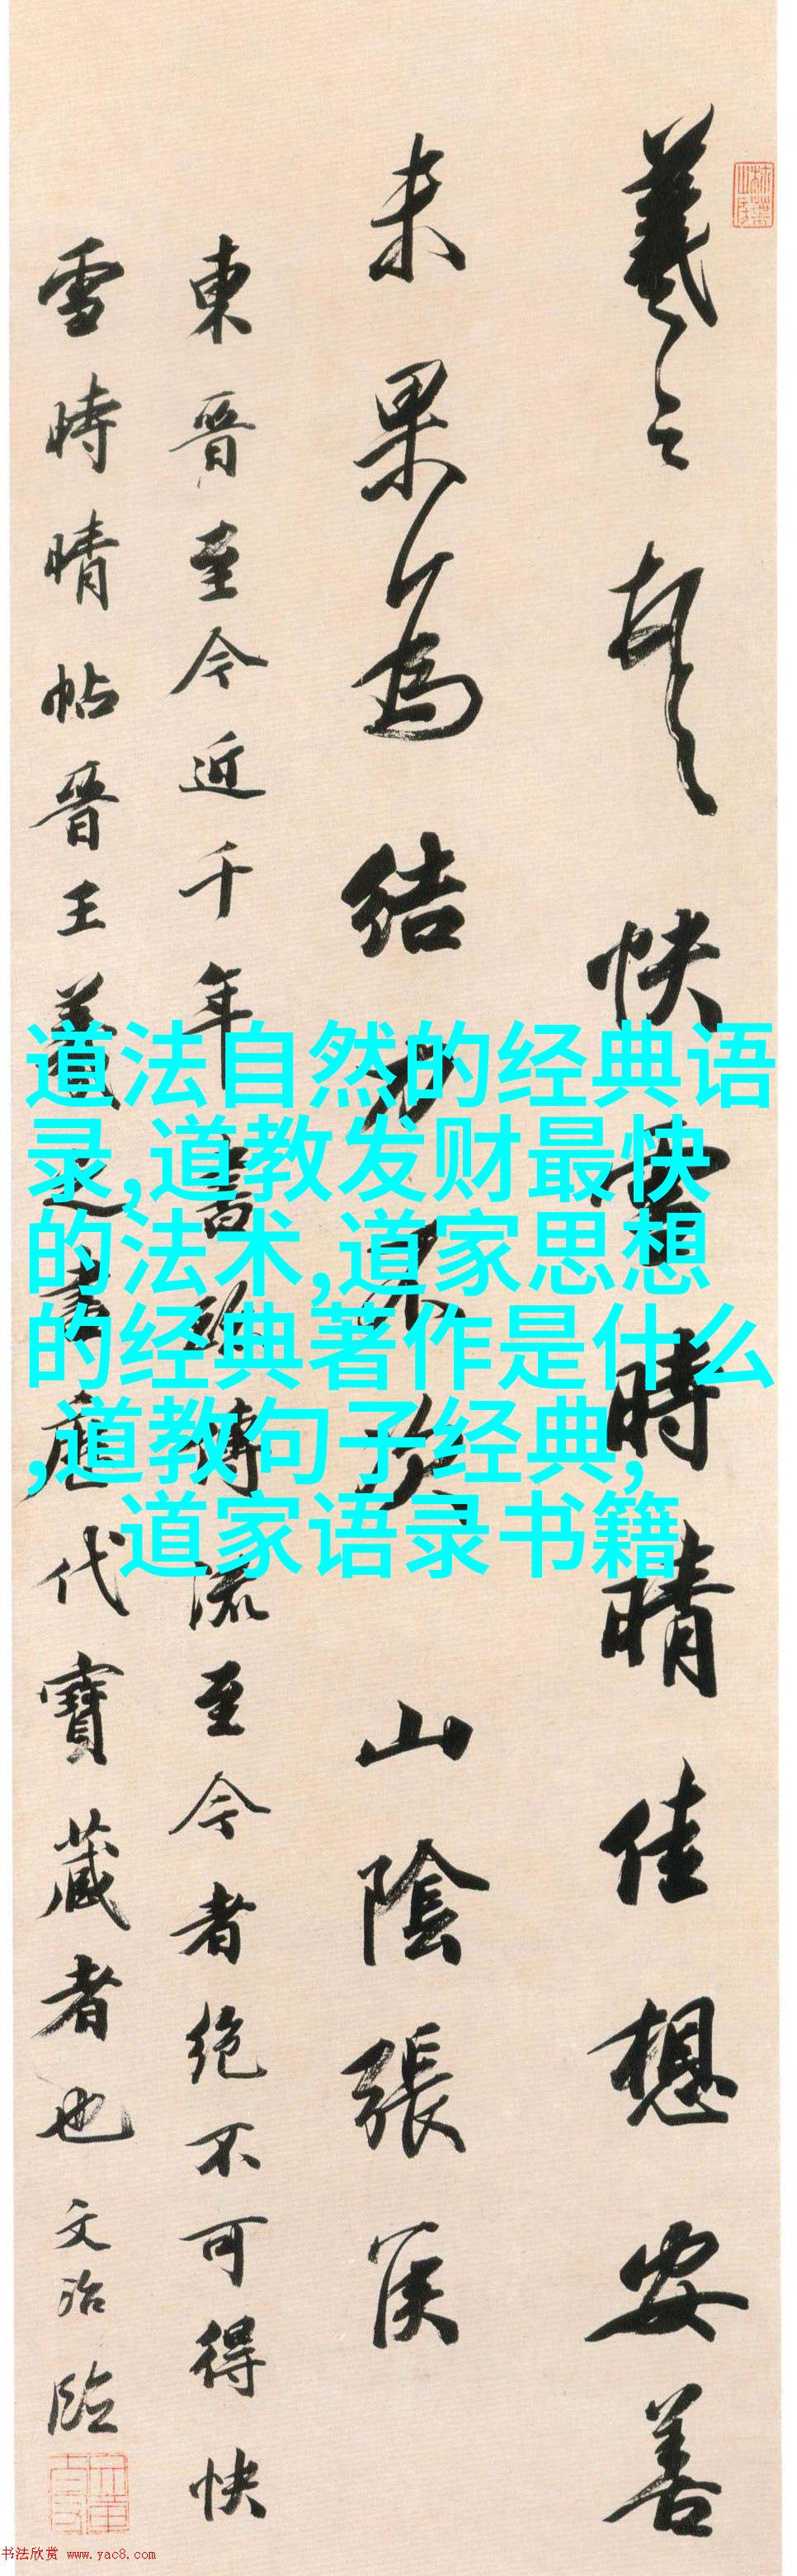 羲之頓首快雪時晴佳想安善
未果為結力不次山陰張侯
東晉至今近千年書跡傳流至今者絶不可得快
雪時晴帖晉王羲之書歷代寶藏者也文治臨
道法自然的经典语
录,道教发财最快
的法术,道家思想
的经典著作是什么
,道教句子经典,
道家语录书籍
书法欣赏 www.yac8.com